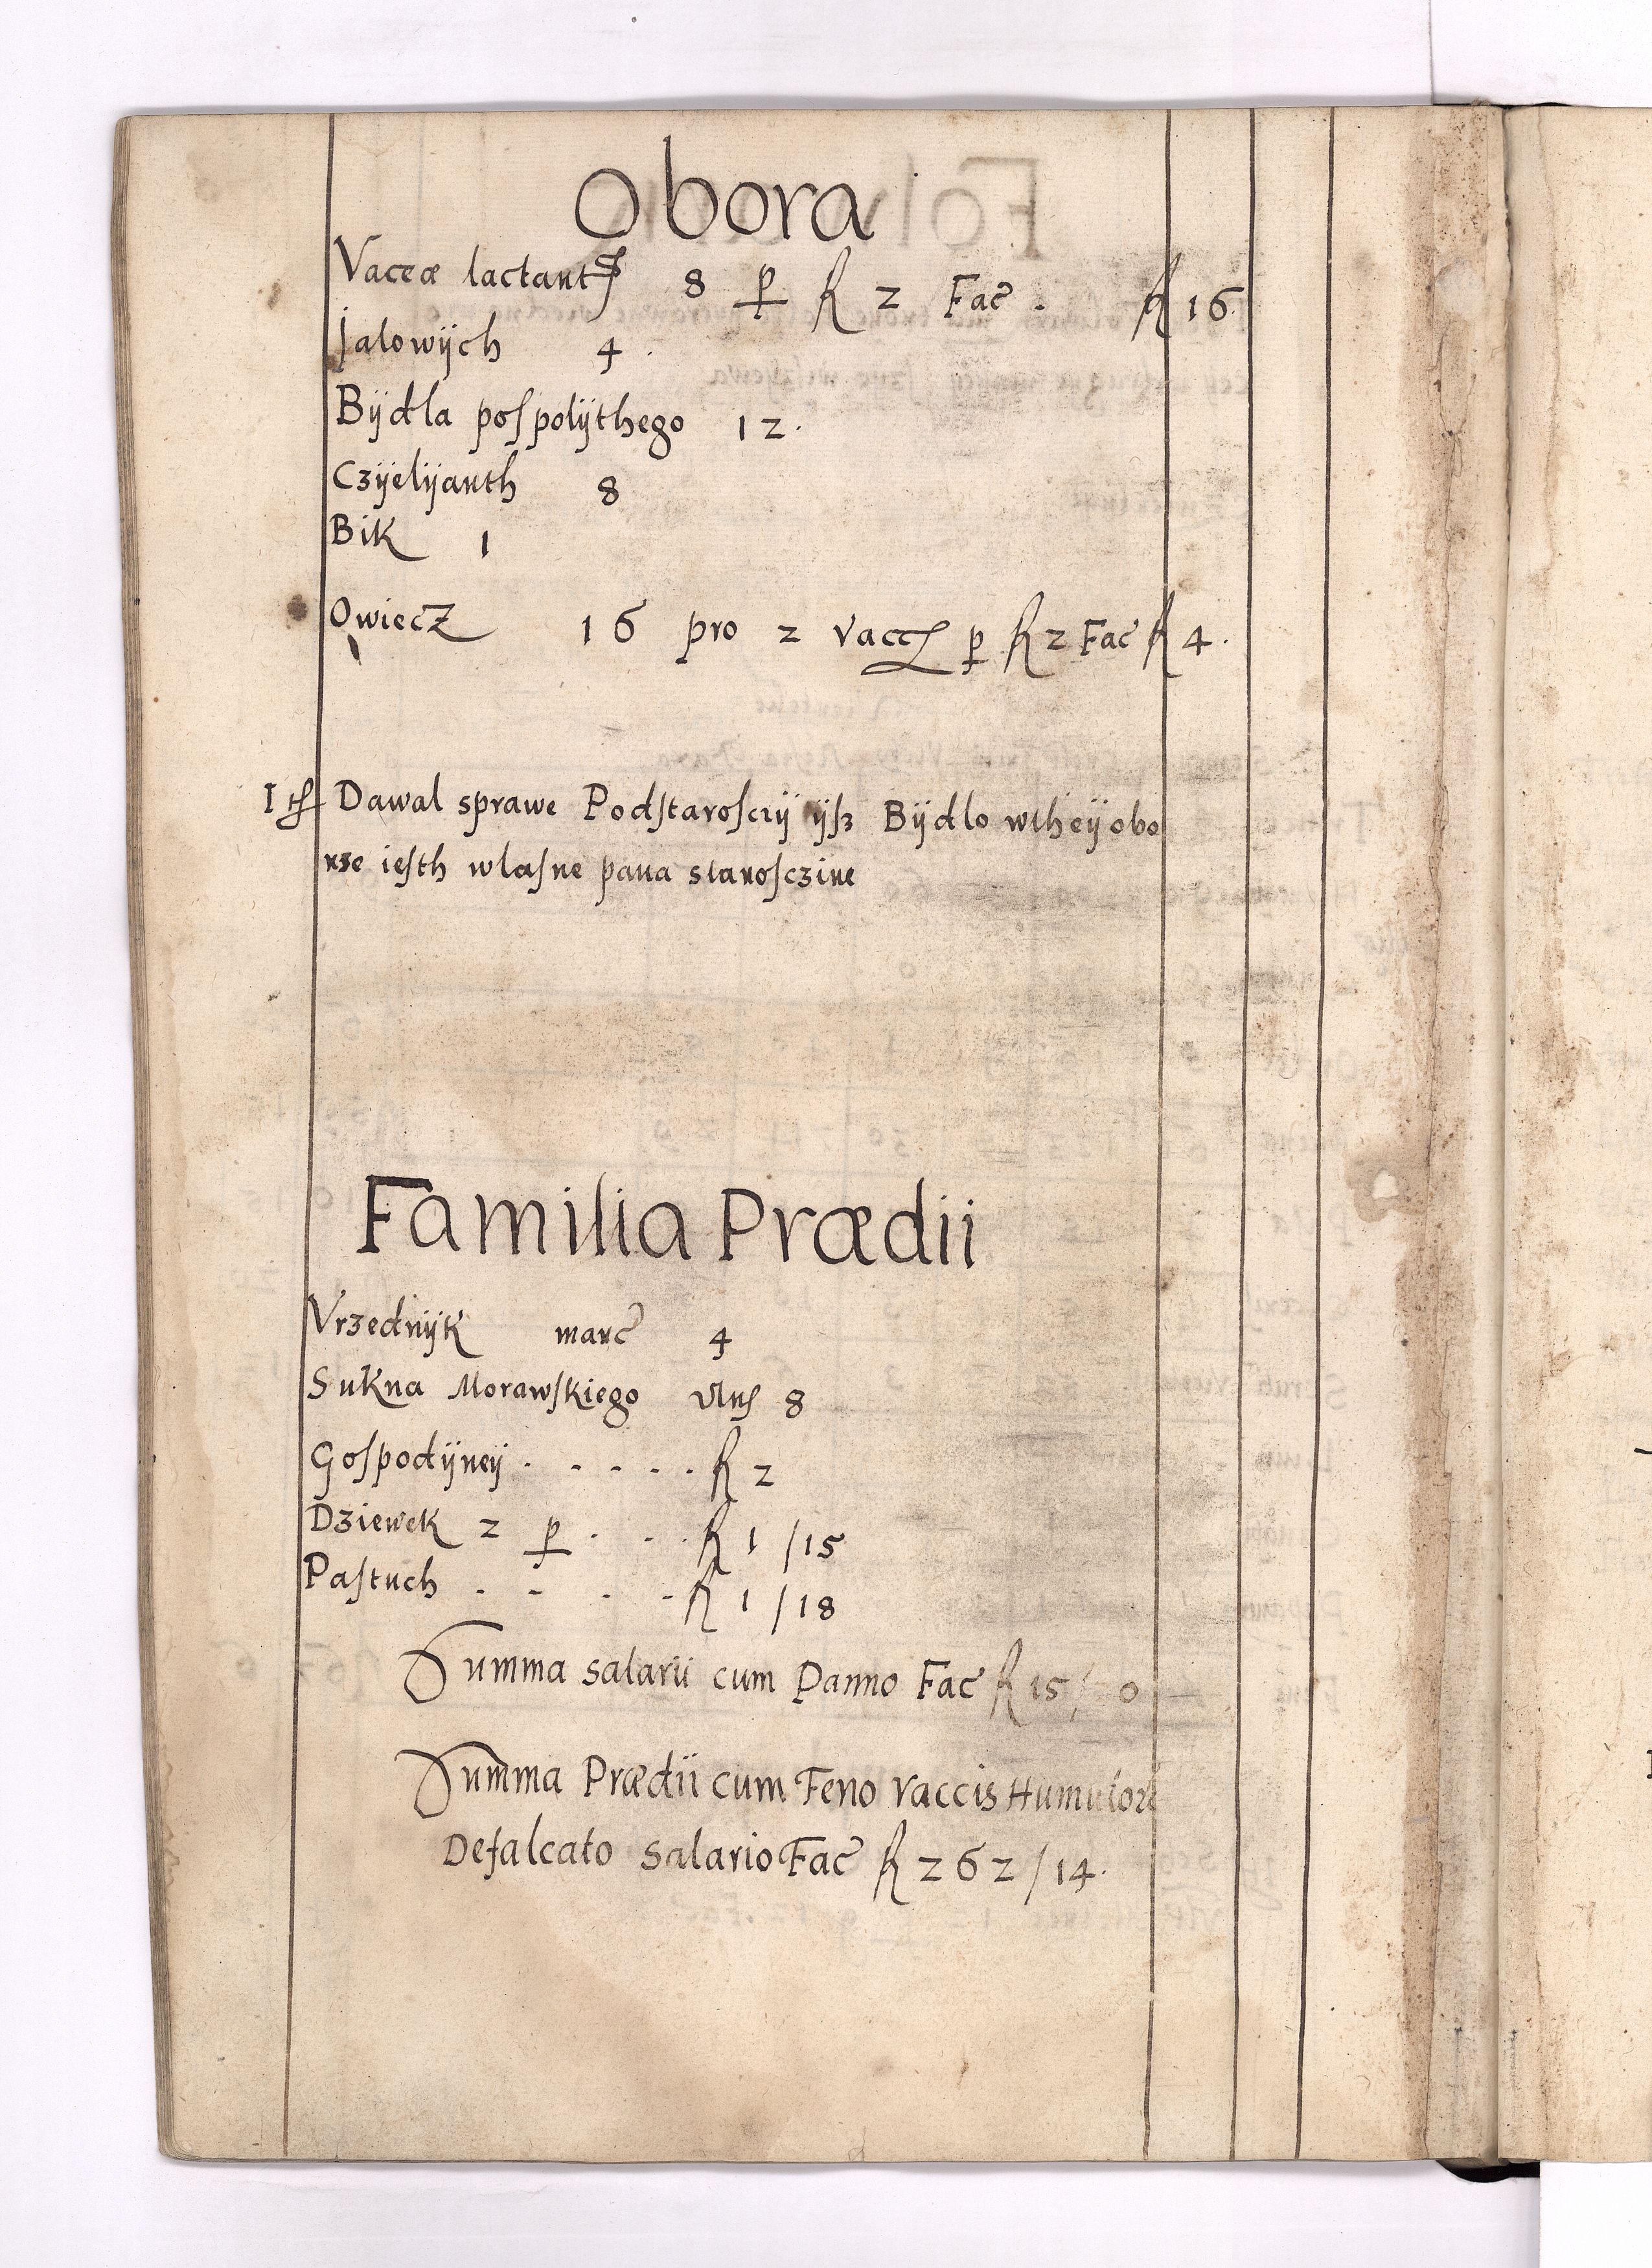 Obora
Vaccæ lactantes 8 p fl 2 Fac̃ . fl 16.
Jalowÿch 4 .
Bÿdla poſpolÿthego 12.
Czÿelÿanth 8
Bik 1
Owiecz 16 pro 2 vaccis p fl 2 Fac̃ fl 4.
Dawal sprawe Podſtaroſciÿ ÿſz Bÿdlo wtheÿ obo
rze ieſth wlaſne pana staroſczine
Familia Prædii
Vrzednÿk marc̃ 4
Sukna Morawſkiego vlns 8
Goſpodÿneÿ . . . . . fl 2
Dziewek 2 p . . . fl 1 /15
Paſtuch . . . . fl 1 /18
Summa salarii cum Panno Fac̃ fl 15/ 0
Summa Prædii cum Feno Vaccis Humulore
Defalcato Salario Fac̃ fl 262/14.